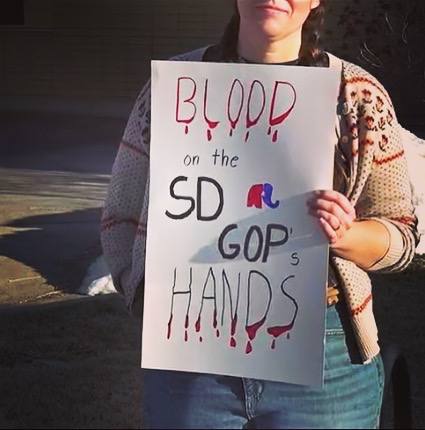 BLOOD
on the
SD
GOP's
HANDS